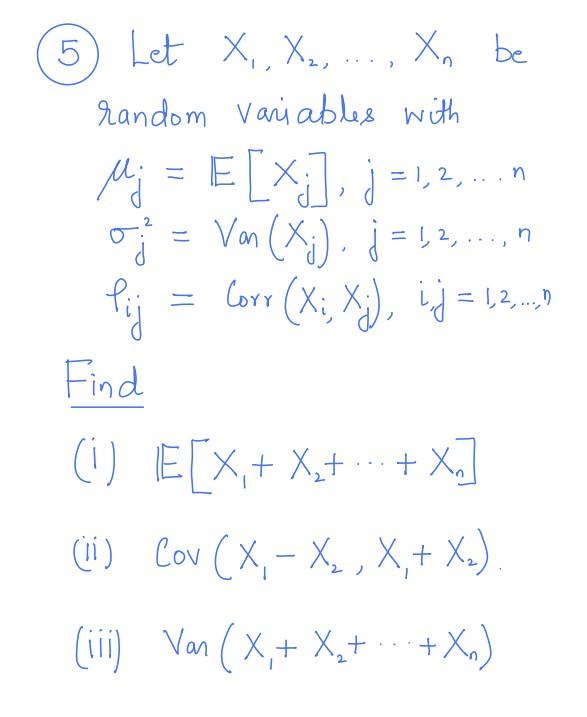 5 Let X₁, X₂, ..., Xₙ be
random variables with
μⱼ = 𝔼[Xⱼ], j = 1, 2, ... n
σⱼ² = Var(Xⱼ), j = 1, 2, ..., n
ρᵢⱼ = Corr(Xᵢ, Xⱼ), i,j = 1, 2, ..., n
Find
(i) 𝔼[X₁ + X₂ + ··· + Xₙ]
(ii) Cov(X₁ - X₂, X₁ + X₂).
(iii) Var(X₁ + X₂ + ··· + Xₙ)